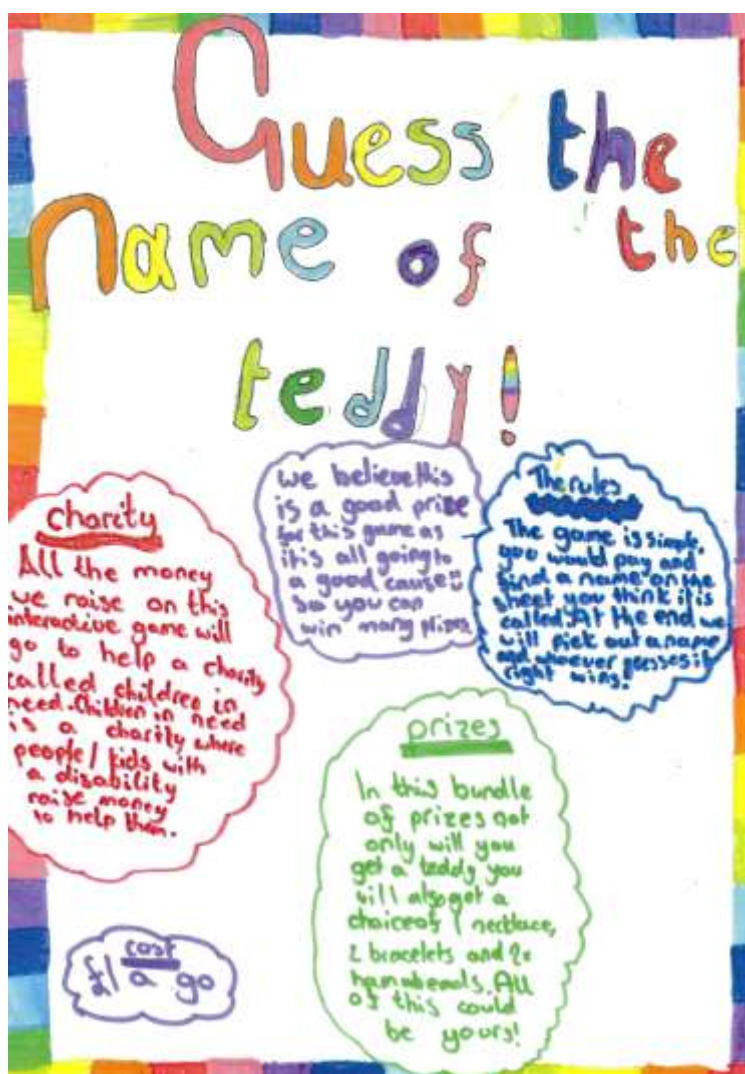 Guess the
name of the
teddy!
charity
All the money
we raise on this
interactive game will
go to help a charity
called children in
need. Children in need
is a charity where
people / kids with
a disability
raise money
to help them.
we believe this
is a good prize
for this game as
it is all going to
a good cause
so you can
win many prizes
The rules
The game is simple,
you would pay and
find a name on the
sheet you think it is
called. At the end we
will pick out a name
and whoever guesses it
right wins!
prizes
In this bundle
of prizes not
only will you
get a teddy you
will also get a
choice of 1 necklace,
2 bracelets and 2x
hamabeads. All
of this could
be yours!
cost
£1 a go